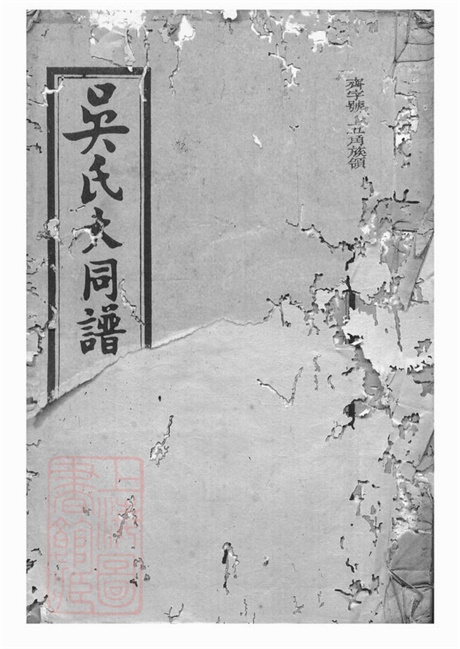 齊字號 五甪族領
吳氏大同譜
上海圖書館藏